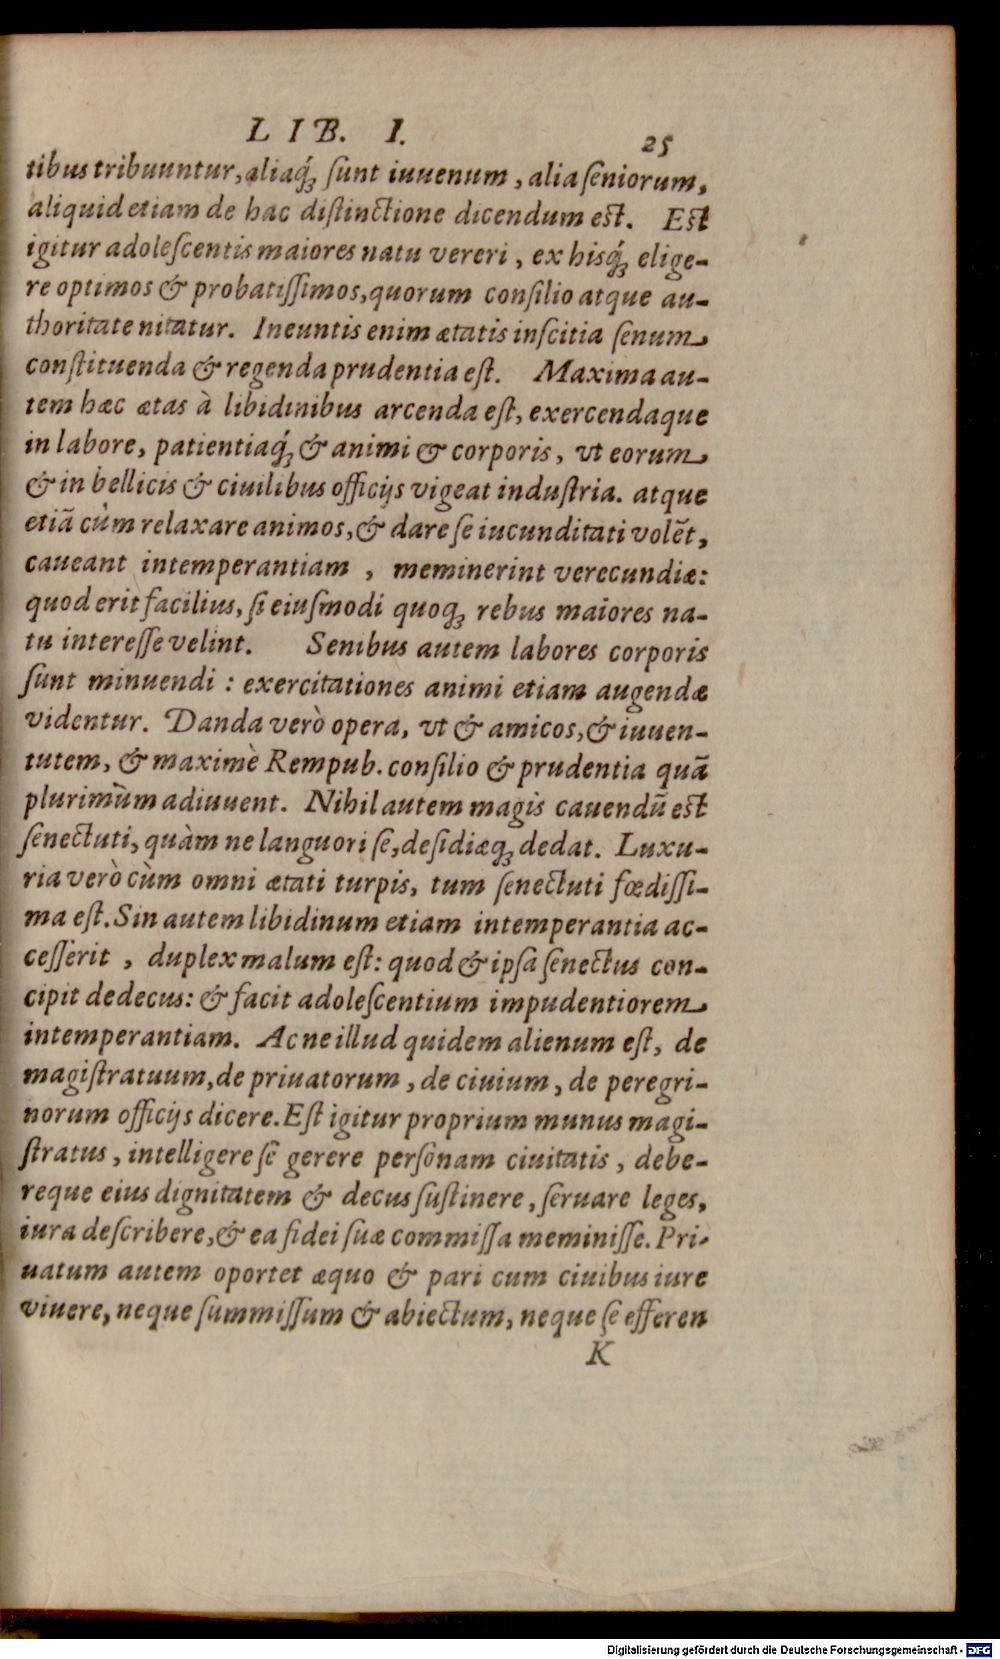 LIB. I. 25
tibus tribuuntur, aliaq́; ſunt iuuenum, alia ſeniorum,
aliquid etiam de hac diſtinctione dicendum eſt. Eſt
igitur adoleſcentis maiores natu vereri, ex hisq́; elige-
re optimos & probatiſſimos, quorum conſilio atque au-
thoritate nitatur. Ineuntis enim ætatis inſcitia ſenum
conſtituenda & regenda prudentia eſt. Maxima au-
tem hæc ætas à libidinibus arcenda eſt, exercendaque
in labore, patientiaq́; & animi & corporis, vt eorum
& in bellicis & ciuilibus officijs vigeat induſtria. atque
etiā cùm relaxare animos, & dare ſe iucunditati volēt,
caueant intemperantiam, meminerint verecundiæ:
quod erit facilius, ſi eiuſmodi quoq; rebus maiores na-
tu intereſſe velint. Senibus autem labores corporis
ſunt minuendi: exercitationes animi etiam augendæ
videntur. Danda verò opera, vt & amicos, & iuuen-
tutem, & maximè Rempub. conſilio & prudentia quā
plurimùm adiuuent. Nihil autem magis cauendū eſt
ſenectuti, quàm ne languori ſe, deſidiæq; dedat. Luxu-
ria verò cùm omni ætati turpis, tum ſenectuti fœdiſſi-
ma eſt. Sin autem libidinum etiam intemperantia ac-
ceſſerit, duplex malum eſt: quod & ipſa ſenectus con-
cipit dedecus: & facit adoleſcentium impudentiorem
intemperantiam. Ac ne illud quidem alienum eſt, de
magiſtratuum, de priuatorum, de ciuium, de peregri-
norum officijs dicere. Eſt igitur proprium munus magi-
ſtratus, intelligere ſe gerere perſonam ciuitatis, debe-
reque eius dignitatem & decus ſuſtinere, ſeruare leges,
iura deſcribere, & ea fidei ſuæ commiſſa meminiſſe. Pri-
uatum autem oportet æquo & pari cum ciuibus iure
viuere, neque ſummiſſum & abiectum, neque ſe efferen
K
Digitalisierung gefördert durch die Deutsche Forschungsgemeinschaft - DFG